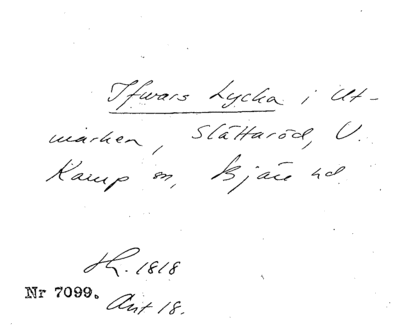 Ifwars Lycka i Ut-
marken, Slättaröd, V.
Karup sn, Bjäre hd
Sk. 1818
Nr 7099.
Akt 18.